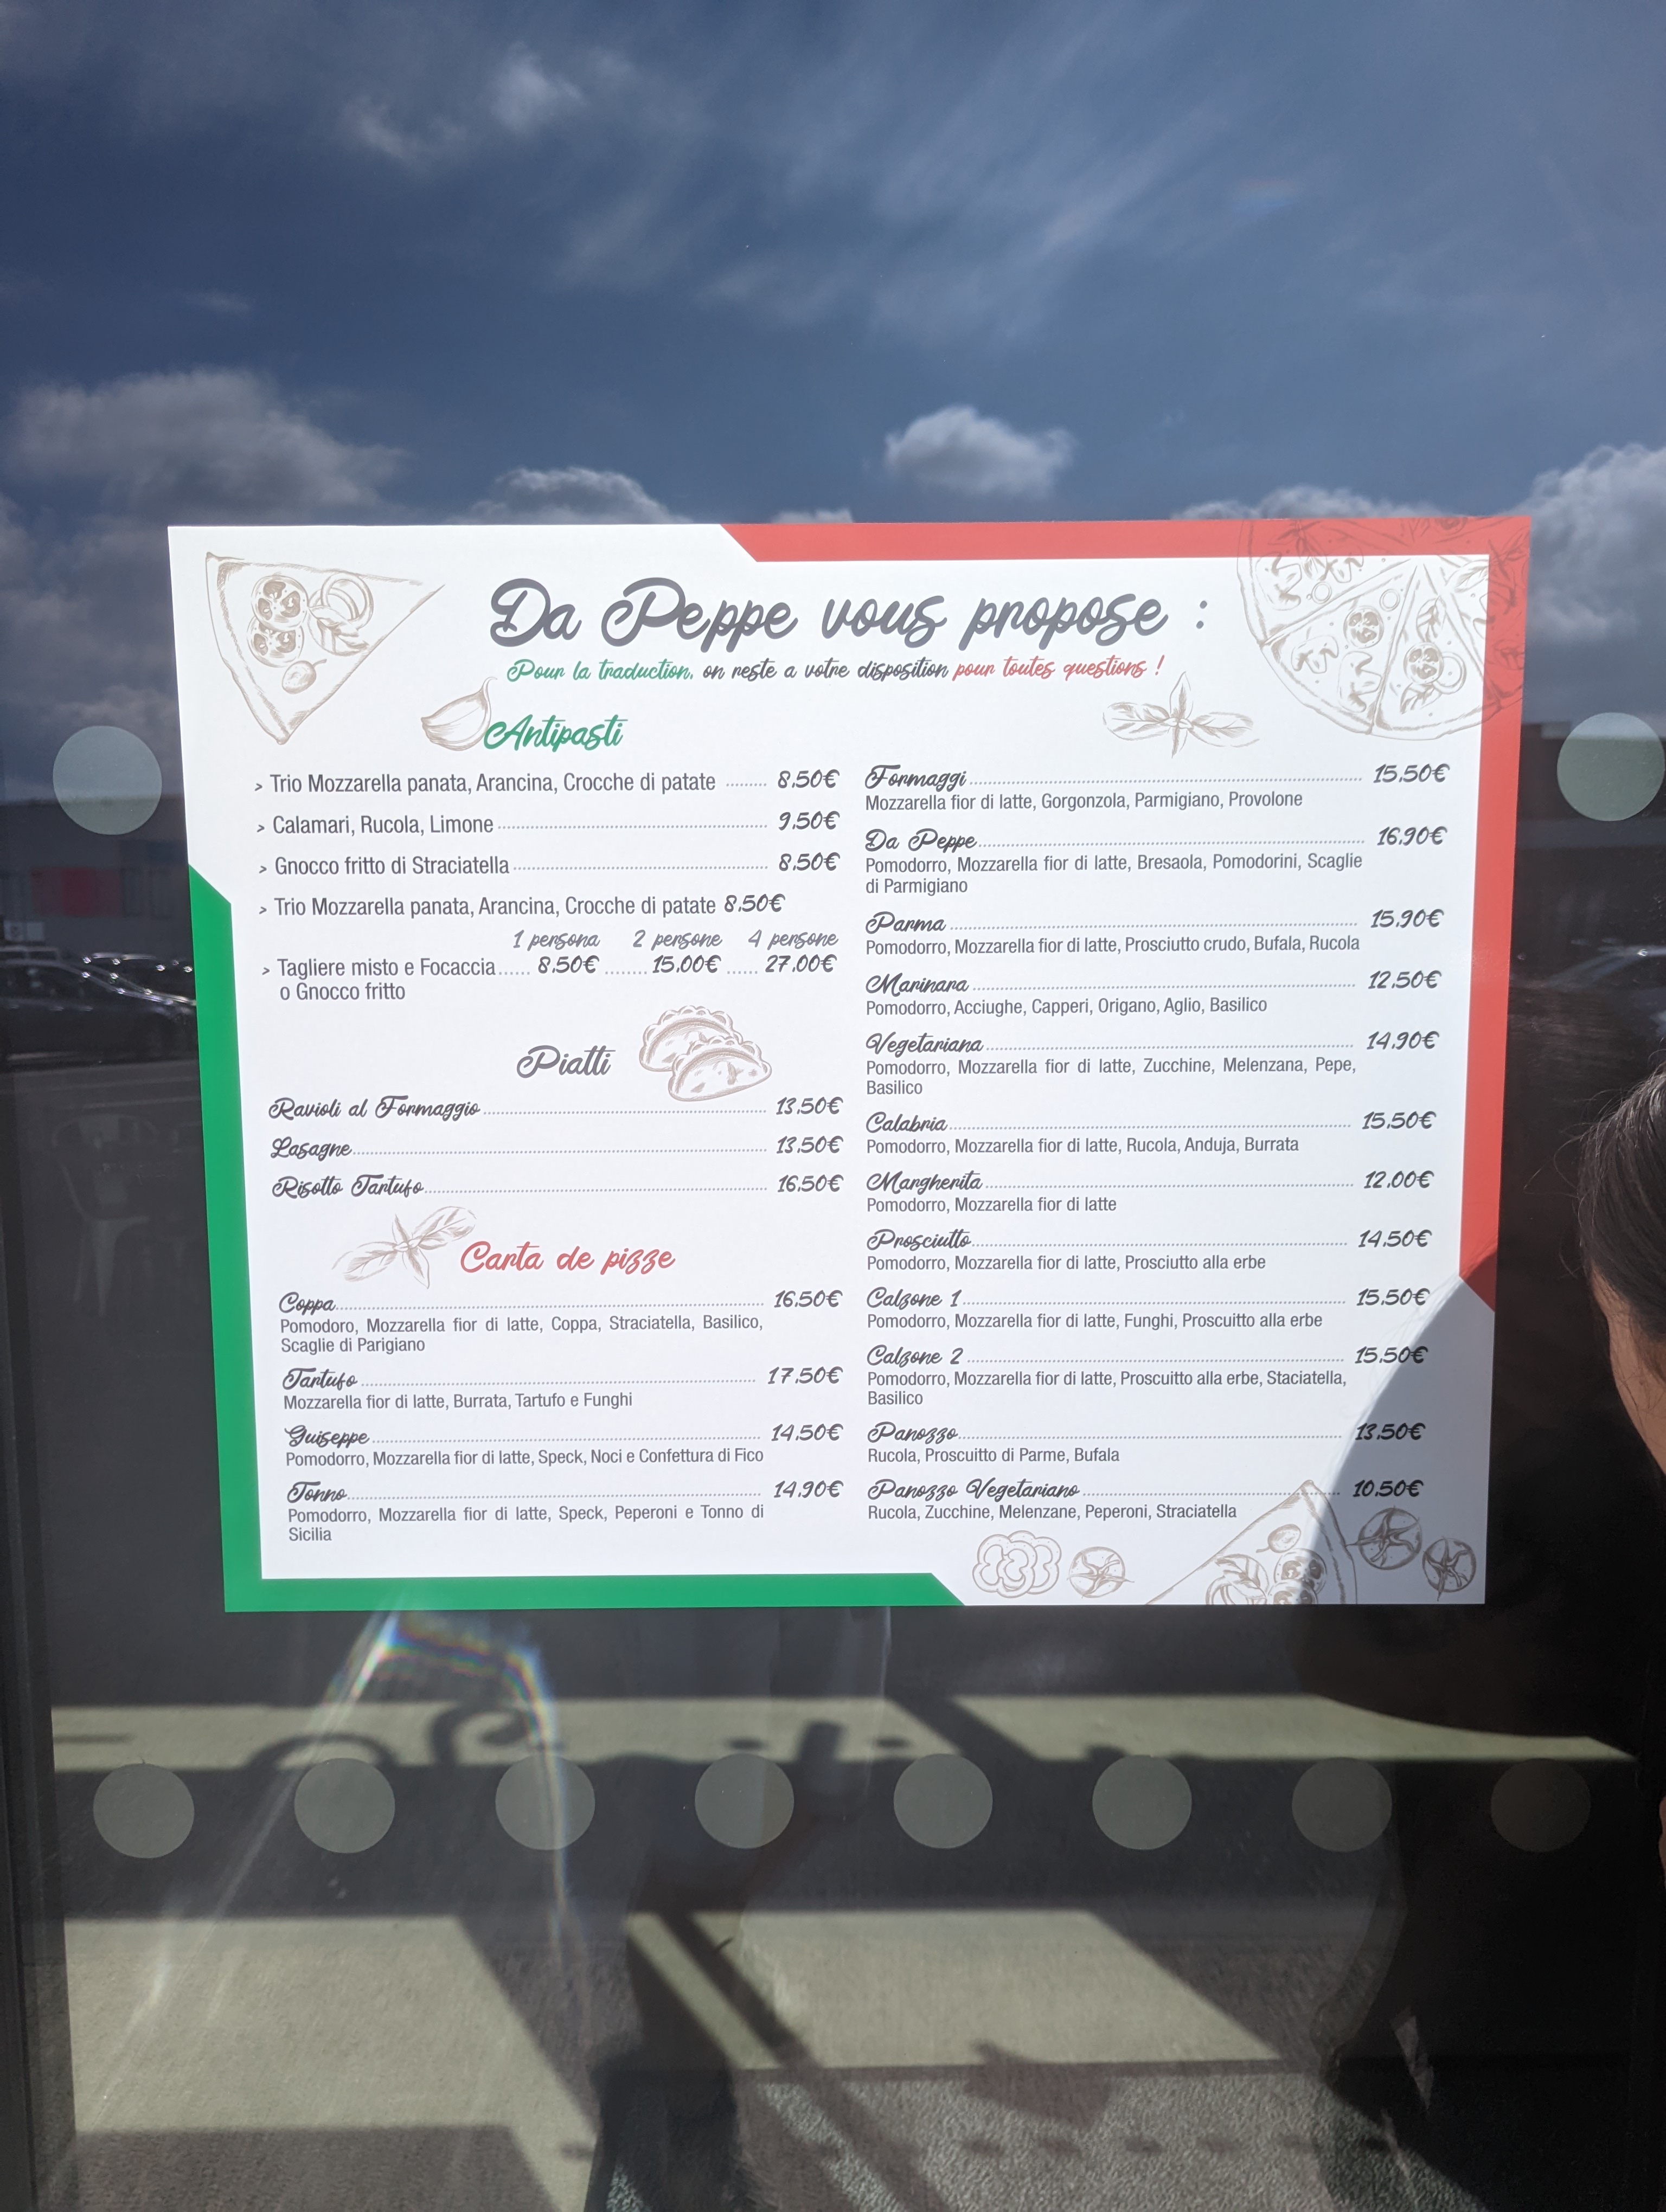 Da Peppe vous propose :
Pour la traduction, on reste a votre disposition pour toutes questions !
Antipasti
> Trio Mozzarella panata, Arancina, Crocche di patate ........ 8.50€
> Calamari, Rucola, Limone ........ 9.50€
> Gnocco fritto di Straciatella ........ 8.50€
> Trio Mozzarella panata, Arancina, Crocche di patate 8.50€
1 persona 2 persone 4 persone
> Tagliere misto e Focaccia ...... 8.50€ ........ 15.00€ ...... 27.00€
o Gnocco fritto
Piatti
Ravioli al Formaggio ........ 13.50€
Lasagne ........ 13.50€
Risotto Tartufo ........ 16.50€
Carta de pizze
Coppa ........ 16.50€
Pomodoro, Mozzarella fior di latte, Coppa, Straciatella, Basilico,
Scaglie di Parigiano
Tartufo ........ 17.50€
Mozzarella fior di latte, Burrata, Tartufo e Funghi
Guiseppe ........ 14.50€
Pomodorro, Mozzarella fior di latte, Speck, Noci e Confettura di Fico
Tonno ........ 14.90€
Pomodorro, Mozzarella fior di latte, Speck, Peperoni e Tonno di
Sicilia
Formaggi ........ 15.50€
Mozzarella fior di latte, Gorgonzola, Parmigiano, Provolone
Da Peppe ........ 16.90€
Pomodorro, Mozzarella fior di latte, Bresaola, Pomodorini, Scaglie
di Parmigiano
Parma ........ 15.90€
Pomodorro, Mozzarella fior di latte, Prosciutto crudo, Bufala, Rucola
Marinara ........ 12.50€
Pomodorro, Acciughe, Capperi, Origano, Aglio, Basilico
Vegetariana ........ 14.90€
Pomodorro, Mozzarella fior di latte, Zucchine, Melenzana, Pepe,
Basilico
Calabria ........ 15.50€
Pomodorro, Mozzarella fior di latte, Rucola, Anduja, Burrata
Margherita ........ 12.00€
Pomodorro, Mozzarella fior di latte
Prosciutto ........ 14.50€
Pomodorro, Mozzarella fior di latte, Prosciutto alla erbe
Calzone 1 ........ 15.50€
Pomodorro, Mozzarella fior di latte, Funghi, Proscuitto alla erbe
Calzone 2 ........ 15.50€
Pomodorro, Mozzarella fior di latte, Proscuitto alla erbe, Staciatella,
Basilico
Panozzo ........ 13.50€
Rucola, Proscuitto di Parme, Bufala
Panozzo Vegetariano ........ 10.50€
Rucola, Zucchine, Melenzane, Peperoni, Straciatella